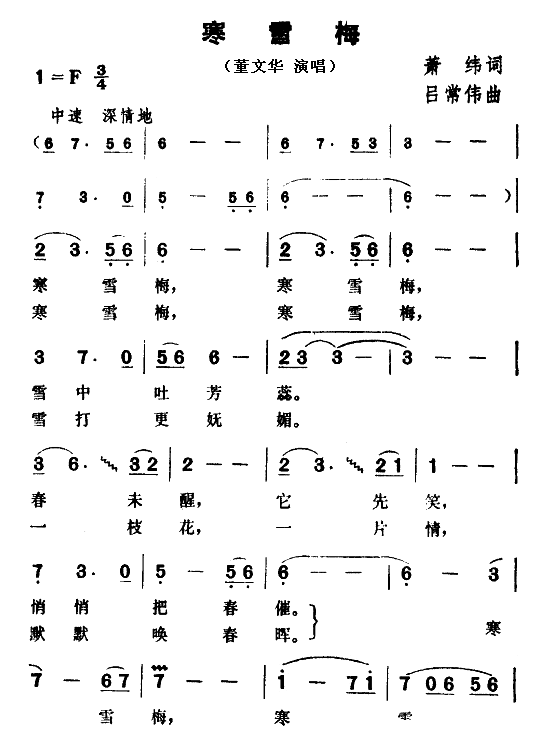 寒雪梅
(董文华 演唱)
1=F 3/4
萧纬词
吕常伟曲
中速 深情地
(6 7· 56 | 6 — — | 6 7· 53 | 3 — — |
7 3· 0 | 5 — 56 | 6 — — | 6 — —) |
2 3· 56 | 6 — — | 2 3· 56 | 6 — — |
寒雪梅, 寒雪梅,
寒雪梅, 寒雪梅,
3 7· 0 | 56 6 — | 23 3 — | 3 — — |
雪中吐芳蕊。
雪打更妩媚。
3 6· 32 | 2 — — | 2 3· 21 | 1 — — |
春未醒, 它先笑,
一枝花, 一片情,
7 3· 0 | 5 — 56 | 6 — — | 6 — 3 |
悄悄把春催。
默默唤春晖。
寒
7 — 67 | 7 — — | i — 7i | 7 06 56 |
雪梅, 寒雪